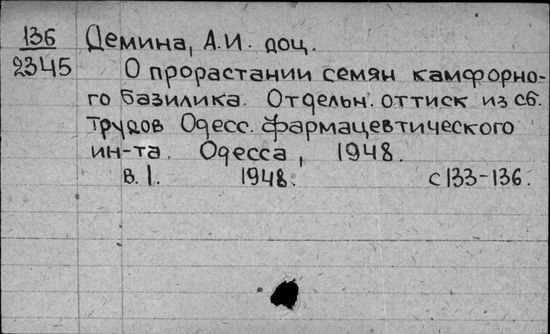 136 Демина, А.И. доц.
2345 О прорастании семян камфорно-
го базилика. Отдельн. оттиск из сб.
трудов Одесс. фармацевтического
ин-та. Одесса, 1948.
в. 1. 1948. с 133-136.